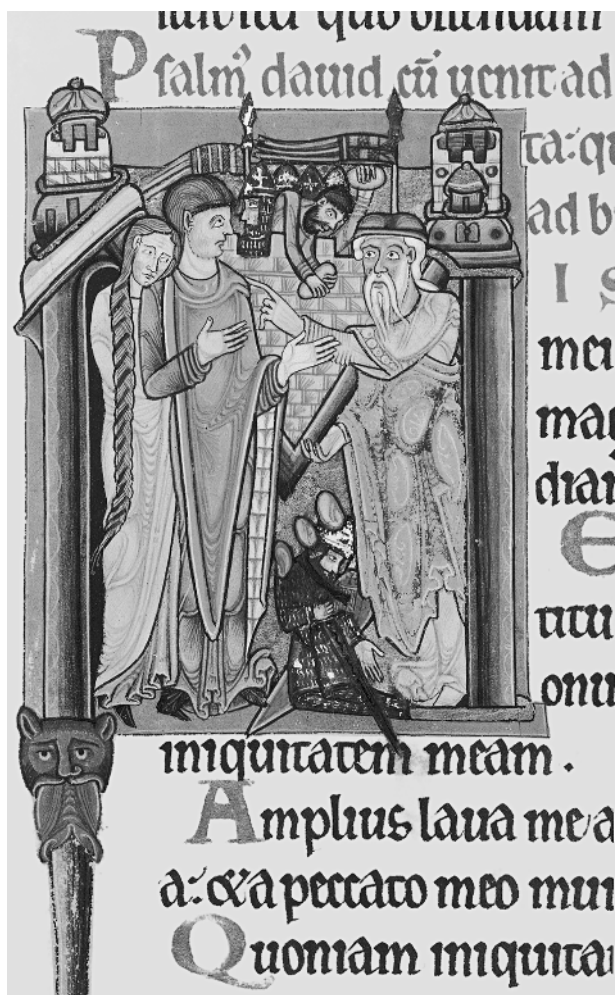 Psalm̄ dauid cū uenit ad
ta: qu
ad b
I S
mei
ma
dia
E
titu
onu
iniquitatem meam .
Amplius laua me a
a: & a peccato meo mun
Quoniam iniquita